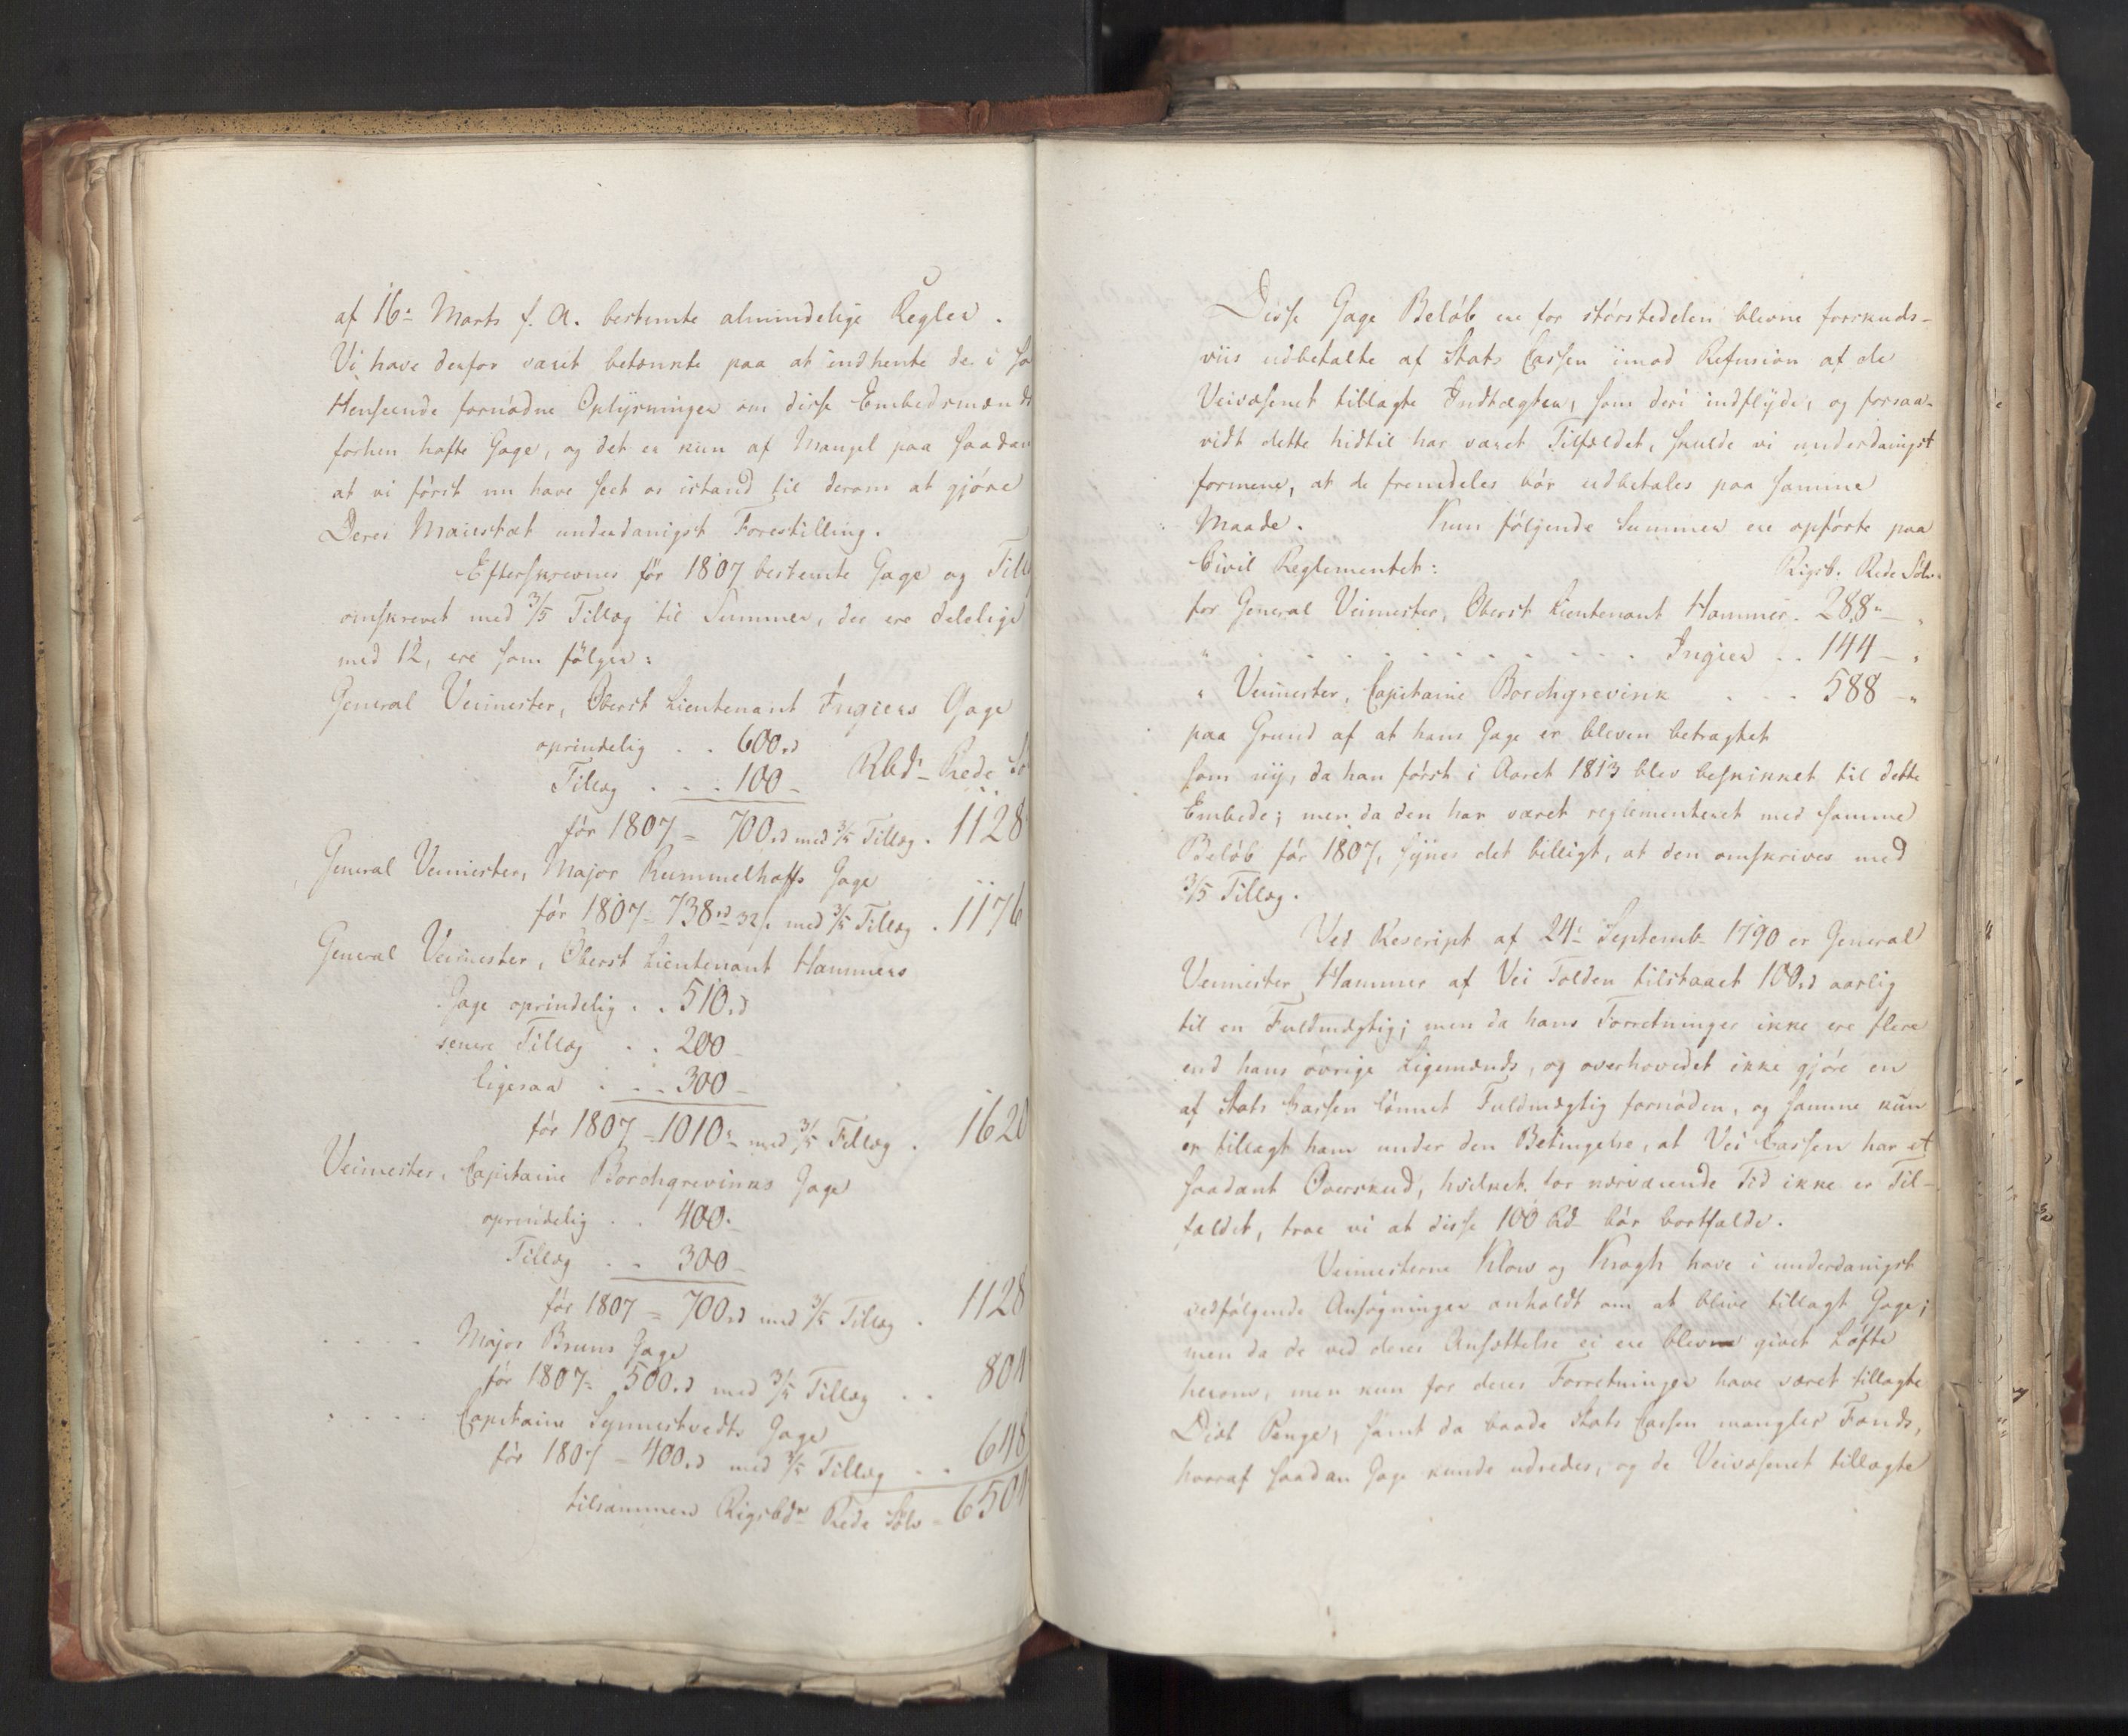 af 16de Marts f. A. bestemte almindelige Regler.
Vi have derfor været betænkte paa at indhente de i saa
Henseende fornødne Oplysninger om disse Embedsmænds
forhen hafte Gage, og det er kun af Mangel paa saadan
at vi først nu have seet os istand til derom at gjøre
Deres Maiestæt underdanigst Forestilling.
Efterskrevnes før 1807 bestemte Gage og Till
omskrevet med 3/5 Tillæg til Summer, der ere delelige
med 12, ere som følger:
General Veimester, Oberst Lieutenant Ingiers Gage
oprindelig . . 600rd
Tillæg . . . 100 - Rbd. Rede Sø
før 1807 = 700rd med 3/5 Tillæg . 1128
General Veimester, Major Rummelhoffs Gage
før 1807 - 738rd 32s. med 3/5 Tillæg . 1176
General Veimester, Oberst Lieutenant Hammers
Gage oprindelig . . 510rd
senere Tillæg . . 200 -
ligesaa . . . 300 -
før 1807 - 1010rd med 3/5 Tillæg . 1620
Veimester, Capitaine Borchgrevinks Gage
oprindelig . . 400.
Tillæg . . 300 -
før 1807 = 700rd med 3/5 Tillæg . 1128
. . . . Major Bruns Gage
før 1807 - 500rd med 3/5 Tillæg . . 804
. . . . Capitaine Synnestvedts Gage
før 1807 - 400rd med 3/5 Tillæg . . 648
tilsammen Rigsbdr Rede Sølv - 6504
Disse Gage Beløb ere for størstedelen blevne forskuds-
viis udbetalte af Stats Cassen imod Refusion af de
Veivæsenet tillagte Indtægter, som deri indflyde, og forsaa-
vidt dette hidtil har været Tilfældet, skulde vi underdanigst
formene, at de fremdeles bør udbetales paa samme
Maade. Kun følgende Summer ere opførte paa
Civil Reglementet: Rigsb. Rede Sølv.
for General Veimester, Oberst Lieutenant Hammer . 288 " - "
" . . . . . . . . . . . . Ingier . . 144 - "
" Veimester, Capitaine Borchgrevink . . . 588 - "
paa Grund af at hans Gage er bleven betragtet
som ny, da han først i Aaret 1813 blev beskikket til dette
Embede; men da den har været reglementeret med samme
Beløb før 1807, synes det billigt, at den omskrives med
3/5 Tillæg.
Ved Rescript af 24de Septemb. 1790 er General
Veimester Hammer af Vei Tolden tilstaaet 100rd aarlig
til en Fuldmægtig; men da hans Forretninger ikke ere flere
end hans øvrige Ligemænds, og overhovedet ikke gjøre en
af Stats Cassen lønnet Fuldmægtig fornøden, og samme kun
er tillagt ham under den Betingelse, at Vei Cassen har et
saadant Overskud, hvilket for nærværende Tid ikke er Til-
fældet, troe vi at disse 100 Rd bør bortfalde.
Veimesterne Klow og Kragh have i underdanigst
vedfølgende Ansøgninger anholdt om at blive tillagt Gage;
men da de ved deres Ansættelse ei ere blevne givet Løfte
herom, men kun for deres Forretninger have været tillagte
Diæt Penge, samt da baade Stats Cassen mangler Fonds,
hvoraf saadan Gage kunde udredes, og de Veivæsenet tillagte